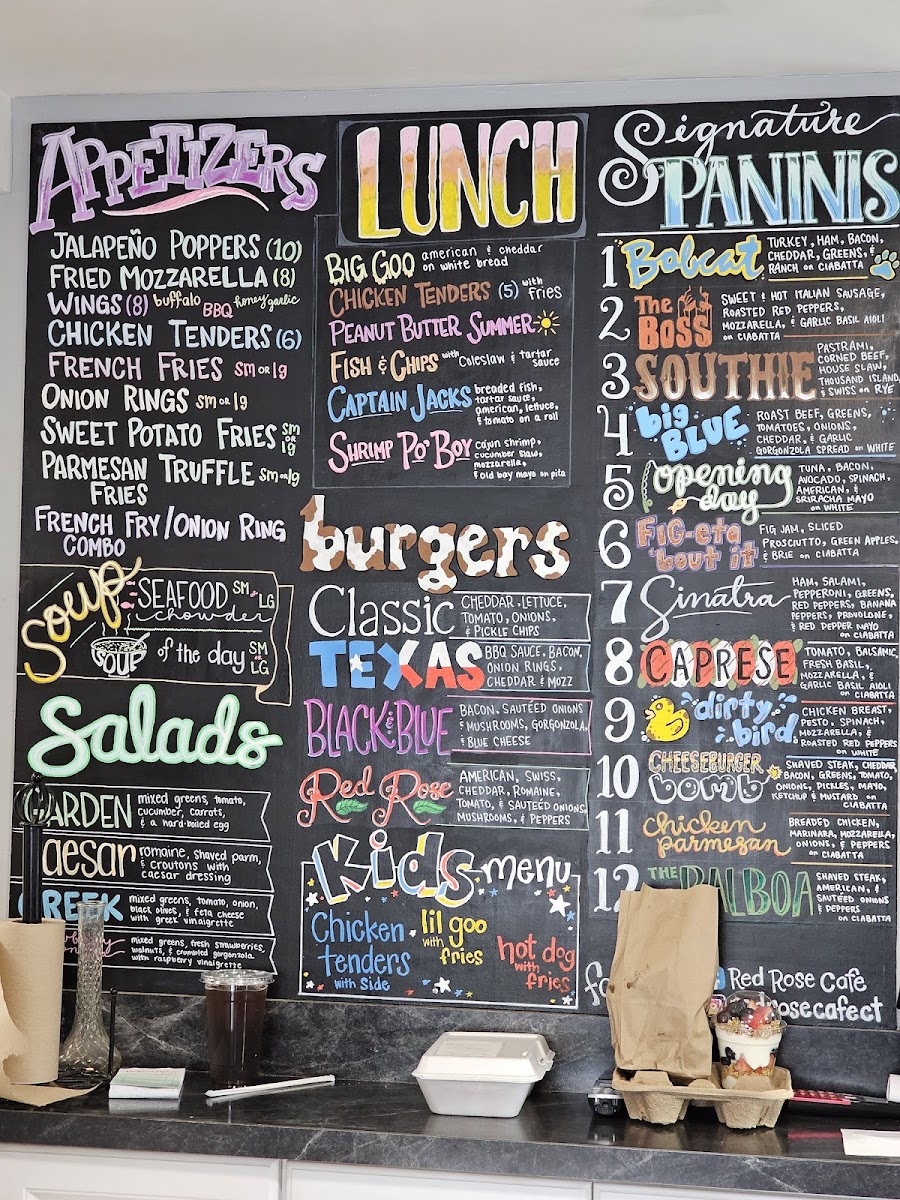 APPETIZERS
JALAPEÑO POPPERS (10)
FRIED MOZZARELLA (8)
WINGS (8) buffalo BBQ honey garlic
CHICKEN TENDERS (6)
FRENCH FRIES sm or lg
ONION RINGS sm or lg
SWEET POTATO FRIES sm or lg
PARMESAN TRUFFLE sm or lg
FRIES
FRENCH FRY/ONION RING
COMBO
Soup
SEAFOOD SM LG
chowder
SOUP of the day SM or LG
Salads
ARDEN mixed greens, tomato,
cucumber, carrots,
& a hard-boiled egg
aesar romaine, shaved parm,
& croutons with
caesar dressing
GREEK mixed greens, tomato, onion,
black olives, & feta cheese
with greek vinaigrette
mixed greens, fresh strawberries,
walnuts, & crumbled gorgonzola
with raspberry vinaigrette
LUNCH
BIG GOO american & cheddar
on white bread
CHICKEN TENDERS (5) with fries
PEANUT BUTTER SUMMER
FISH & CHIPS with Coleslaw & tartar
sauce
CAPTAIN JACKS breaded fish,
tartar sauce,
american, lettuce,
& tomato on a roll
SHRIMP PO' BOY cajun shrimp,
cucumber slaw,
mozzarella,
& old bay mayo on pita
burgers
Classic CHEDDAR, LETTUCE,
TOMATO, ONIONS,
& PICKLE CHIPS
TEXAS BBQ SAUCE, BACON,
ONION RINGS,
CHEDDAR & MOZZ
BLACK & BLUE BACON, SAUTÉED ONIONS
& MUSHROOMS, GORGONZOLA,
& BLUE CHEESE
Red Rose AMERICAN, SWISS,
CHEDDAR, ROMAINE,
TOMATO, & SAUTÉED ONIONS,
MUSHROOMS, & PEPPERS
Kids menu
Chicken
tenders
with side
lil goo
with
fries
hot dog
with
fries
Signature
PANINIS
1 Bobcat TURKEY, HAM, BACON,
CHEDDAR, GREENS, &
RANCH on CIABATTA
2 The BOSS SWEET & HOT ITALIAN SAUSAGE,
ROASTED RED PEPPERS,
MOZZARELLA, & GARLIC BASIL AIOLI
on CIABATTA
3 SOUTHIE PASTRAMI,
CORNED BEEF,
HOUSE SLAW,
THOUSAND ISLAND,
& SWISS on RYE
4 big BLUE ROAST BEEF, GREENS,
TOMATOES, ONIONS,
CHEDDAR, & GARLIC
GORGONZOLA SPREAD on WHITE
5 opening day TUNA, BACON,
AVOCADO, SPINACH,
AMERICAN, &
SRIRACHA MAYO
on WHITE
6 FIG-eta 'bout it FIG JAM, SLICED
PROSCIUTTO, GREEN APPLES,
& BRIE on CIABATTA
7 Sinatra HAM, SALAMI,
PEPPERONI, GREENS,
RED PEPPERS, BANANA
PEPPERS, PROVOLONE,
& RED PEPPER MAYO
on CIABATTA
8 CAPRESE TOMATO, BALSAMIC,
FRESH BASIL,
MOZZARELLA, &
GARLIC BASIL AIOLI
on CIABATTA
9 dirty bird CHICKEN BREAST,
PESTO, SPINACH,
MOZZARELLA, &
ROASTED RED PEPPERS
on WHITE
10 CHEESEBURGER BOMB SHAVED STEAK, CHEDDAR,
BACON, GREENS, TOMATO,
ONIONS, PICKLES, MAYO,
KETCHUP & MUSTARD on
CIABATTA
11 chicken parmesan BREADED CHICKEN,
MARINARA, MOZZARELLA,
ONIONS, & PEPPERS
on CIABATTA
12 THE BALBOA SHAVED STEAK,
AMERICAN, &
SAUTÉED ONIONS
& PEPPERS
on CIABATTA
fo
Red Rose Cafe
drosecafect